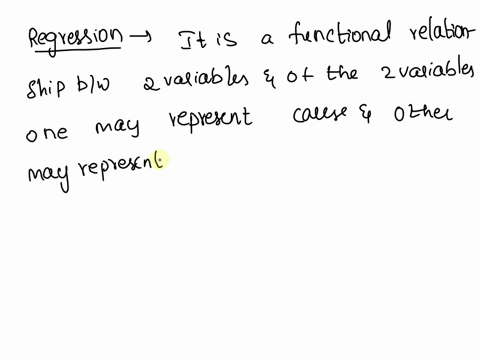 Regression → It is a functional relation-
ship b/w 2 variables & of the 2 variables
one may represent cause & other
may represent